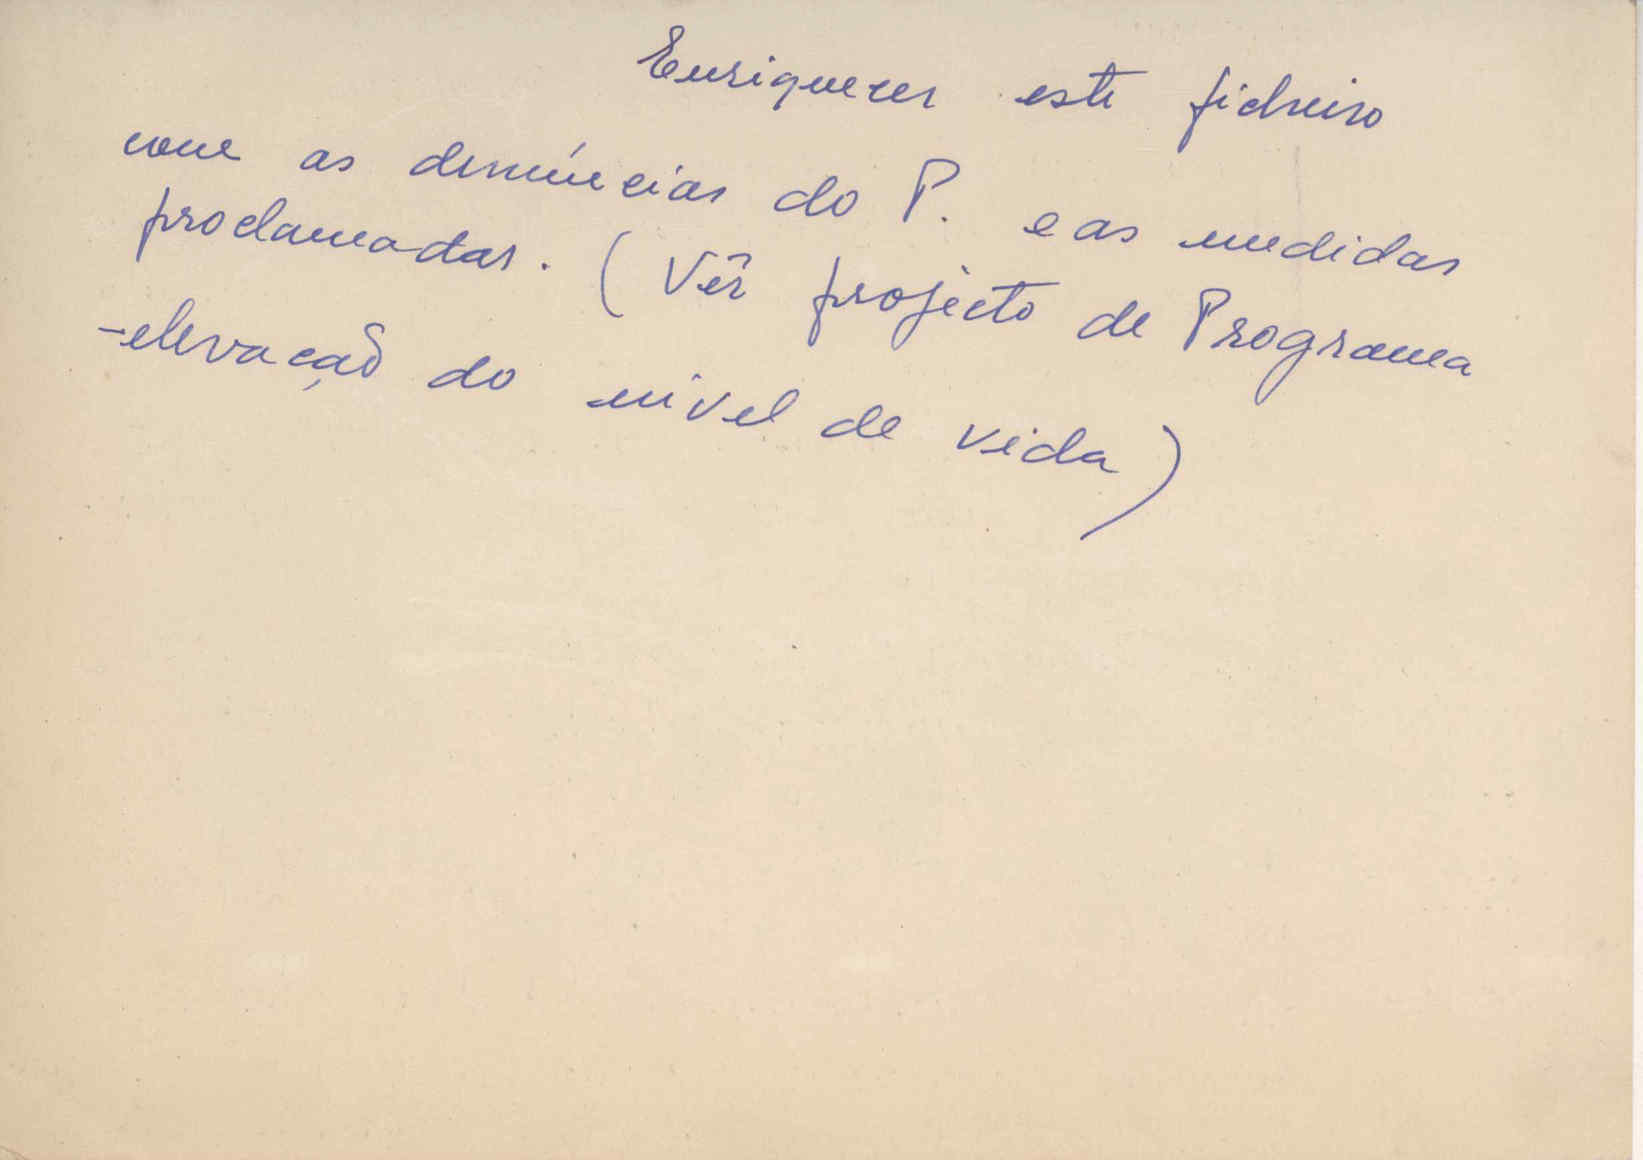 Enriquecer este ficheiro
com as denúncias do P. e as medidas
proclamadas. (Vêr projecto de Programa
-elevação do nivel de vida)